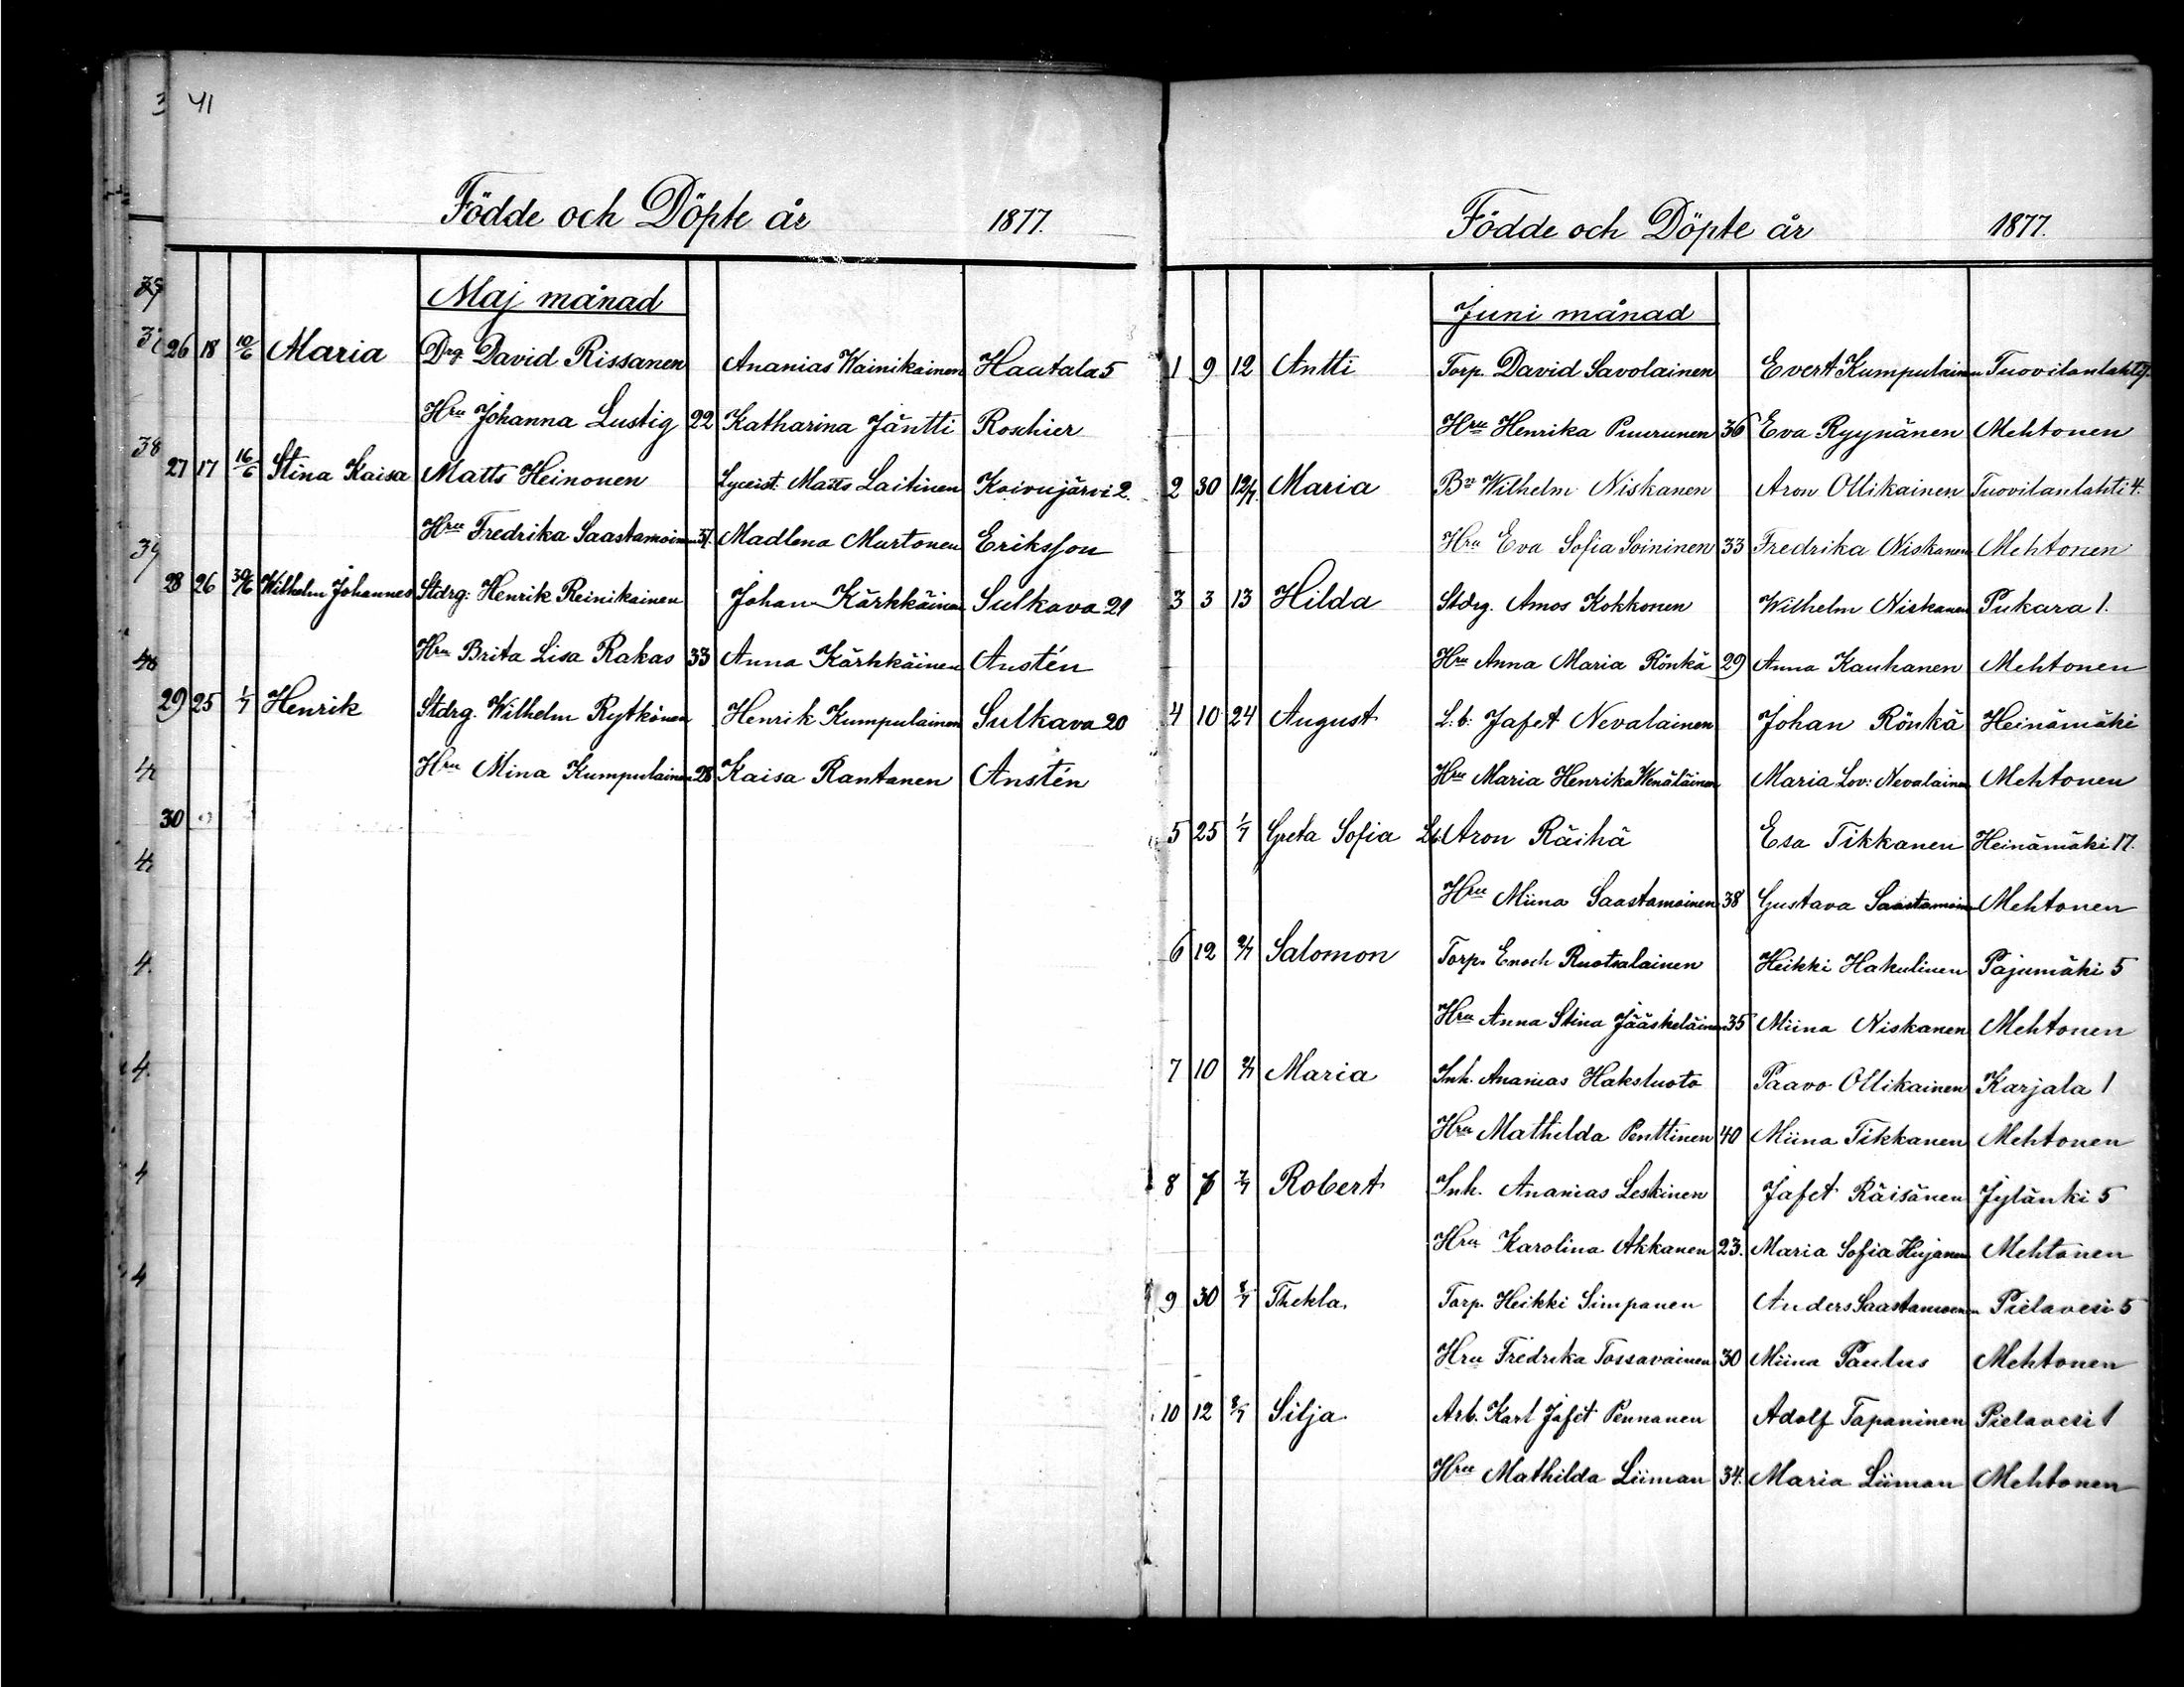 41
Födde och Döpte år 1877.
Maj månad
26 18 10/6 Maria Drg David Rissanen Ananias Wainikainen Haatala 5
Hru Johanna Lustig 22 Katharina Jäntti Roschier
27 17 16/6 Stina Kaisa Matts Heinonen Lyceist. Matts Laitinen Koivujärvi 2.
Hru Fredrika Saastamoinen 37. Madlena Martonen Eriksson
28 26 30/6 Wilhelm Johannes Stdrg: Henrik Reinikainen Johan Kärkkäinen Sulkava 21
Hru Brita Lisa Rakas 33 Anna Kärkkäinen Austén
29 25 1/7 Henrik Stdrg. Wilhelm Rytkönen Henrik Kumpulainen Sulkava 20
Hru Mina Kumpulainen 28 Kaisa Rantanen Austén
30
Födde och Döpte år 1877.
Juni månad
1 9 12 Antti Torp. David Savolainen Evert Kumpulainen Tuovilanlahti
Hru Henrika Puurunen 36 Eva Ryynänen Mehtonen
2 30 12/7 Maria Br Wilhelm Niskanen Aron Ollikainen Tuovilanlahti 4.
Hru Eva Sofia Soininen 33 Fredrika Niskanen Mehtonen
3 3 13 Hilda Stdrg. Amos Kokkonen Wilhelm Niskanen Pukara 1.
Hru Anna Maria Rönkä 29 Anna Kauhanen Mehtonen
4 10 24 August L:b: Jafet Nevalainen Johan Rönkä Heinämäki
Hru Maria Henrika Wenäläinen Maria Lov: Nevalainen Mehtonen
5 25 1/7 Greta Sofia Lb Aron Räihä Esa Tikkanen Heinämäki 17.
Hru Miina Saastamoinen 38 Gustava Saastamoinen Mehtonen
6 12 2/7 Salomon Torp. Enoch Ruotsalainen Heikki Hakulinen Pajumäki 5
Hru Anna Stina Jääskeläinen 35 Miina Niskanen Mehtonen
7 10 2/7 Maria Inh. Ananias Haksluoto Paavo Ollikainen Karjala 1
Hru Mathilda Penttinen 40 Miina Tikkanen Mehtonen
8 7/7 Robert Inh. Ananias Leskinen Jafet Räisänen Jylänki 5
Hru Karolina Akkanen 23. Maria Sofia Hujanen Mehtonen
9 30 8/7 Thekla. Torp. Heikki Simpanen Anders Saastamoinen Pielavesi 5
Hru Fredrika Tossavainen 30 Miina Paulus Mehtonen
10 12 8/7 Silja Arb. Karl Jafet Pennanen Adolf Tapaninen Pielavesi 1
Hru Mathilda Liiman 34. Maria Liiman Mehtonen